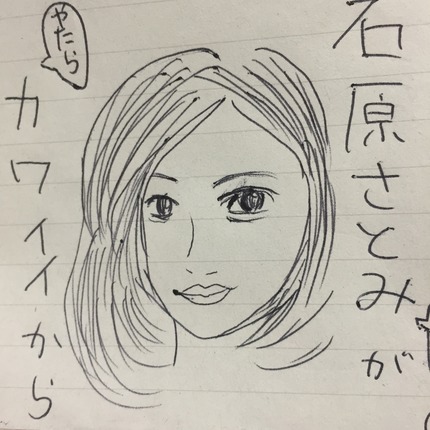 石原さとみが
やたら
カワイイから